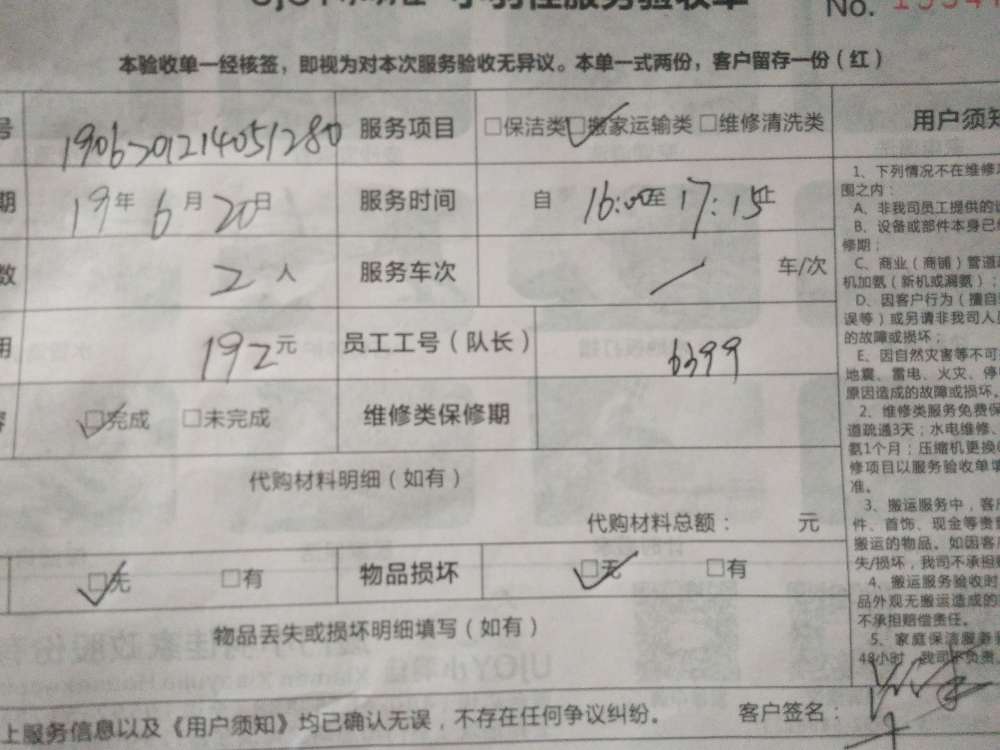 服务验收单
No.
本验收单一经核签，即视为对本次服务验收无异议。本单一式两份，客户留存一份（红）
号 1906201214051280 服务项目 □保洁类 □搬家运输类 □维修清洗类 用户须知
期 19年6月20日 服务时间 自 16:00至17:15止
数 2人 服务车次 / 车/次
用 192元 员工工号（队长） 6399
容 □完成 □未完成 维修类保修期
代购材料明细（如有）
代购材料总额： 元
□无 □有 物品损坏 □无 □有
物品丢失或损坏明细填写（如有）
上服务信息以及《用户须知》均已确认无误，不存在任何争议纠纷。 客户签名：
1、下列情况不在维修
围之内：
A、非我司员工提供的
B、设备或部件本身已
修期；
C、商业（商铺）管道
机加氨（新机或漏氨）；
D、因客户行为（擅自
误等）或另请非我司人
的故障或损坏；
E、因自然灾害等不可
地震、雷电、火灾、停
原因造成的故障或损坏。
2、维修类服务免费保
道疏通3天；水电维修、
氨1个月；压缩机更换
修项目以服务验收单
准。
3、搬运服务中，客
件、首饰、现金等贵
搬运的物品。如因客
失/损坏，我司不承担
4、搬运服务验收时
品外观无搬运造成的
不承担赔偿责任。
5、家庭保洁服务
48小时，我司不负责